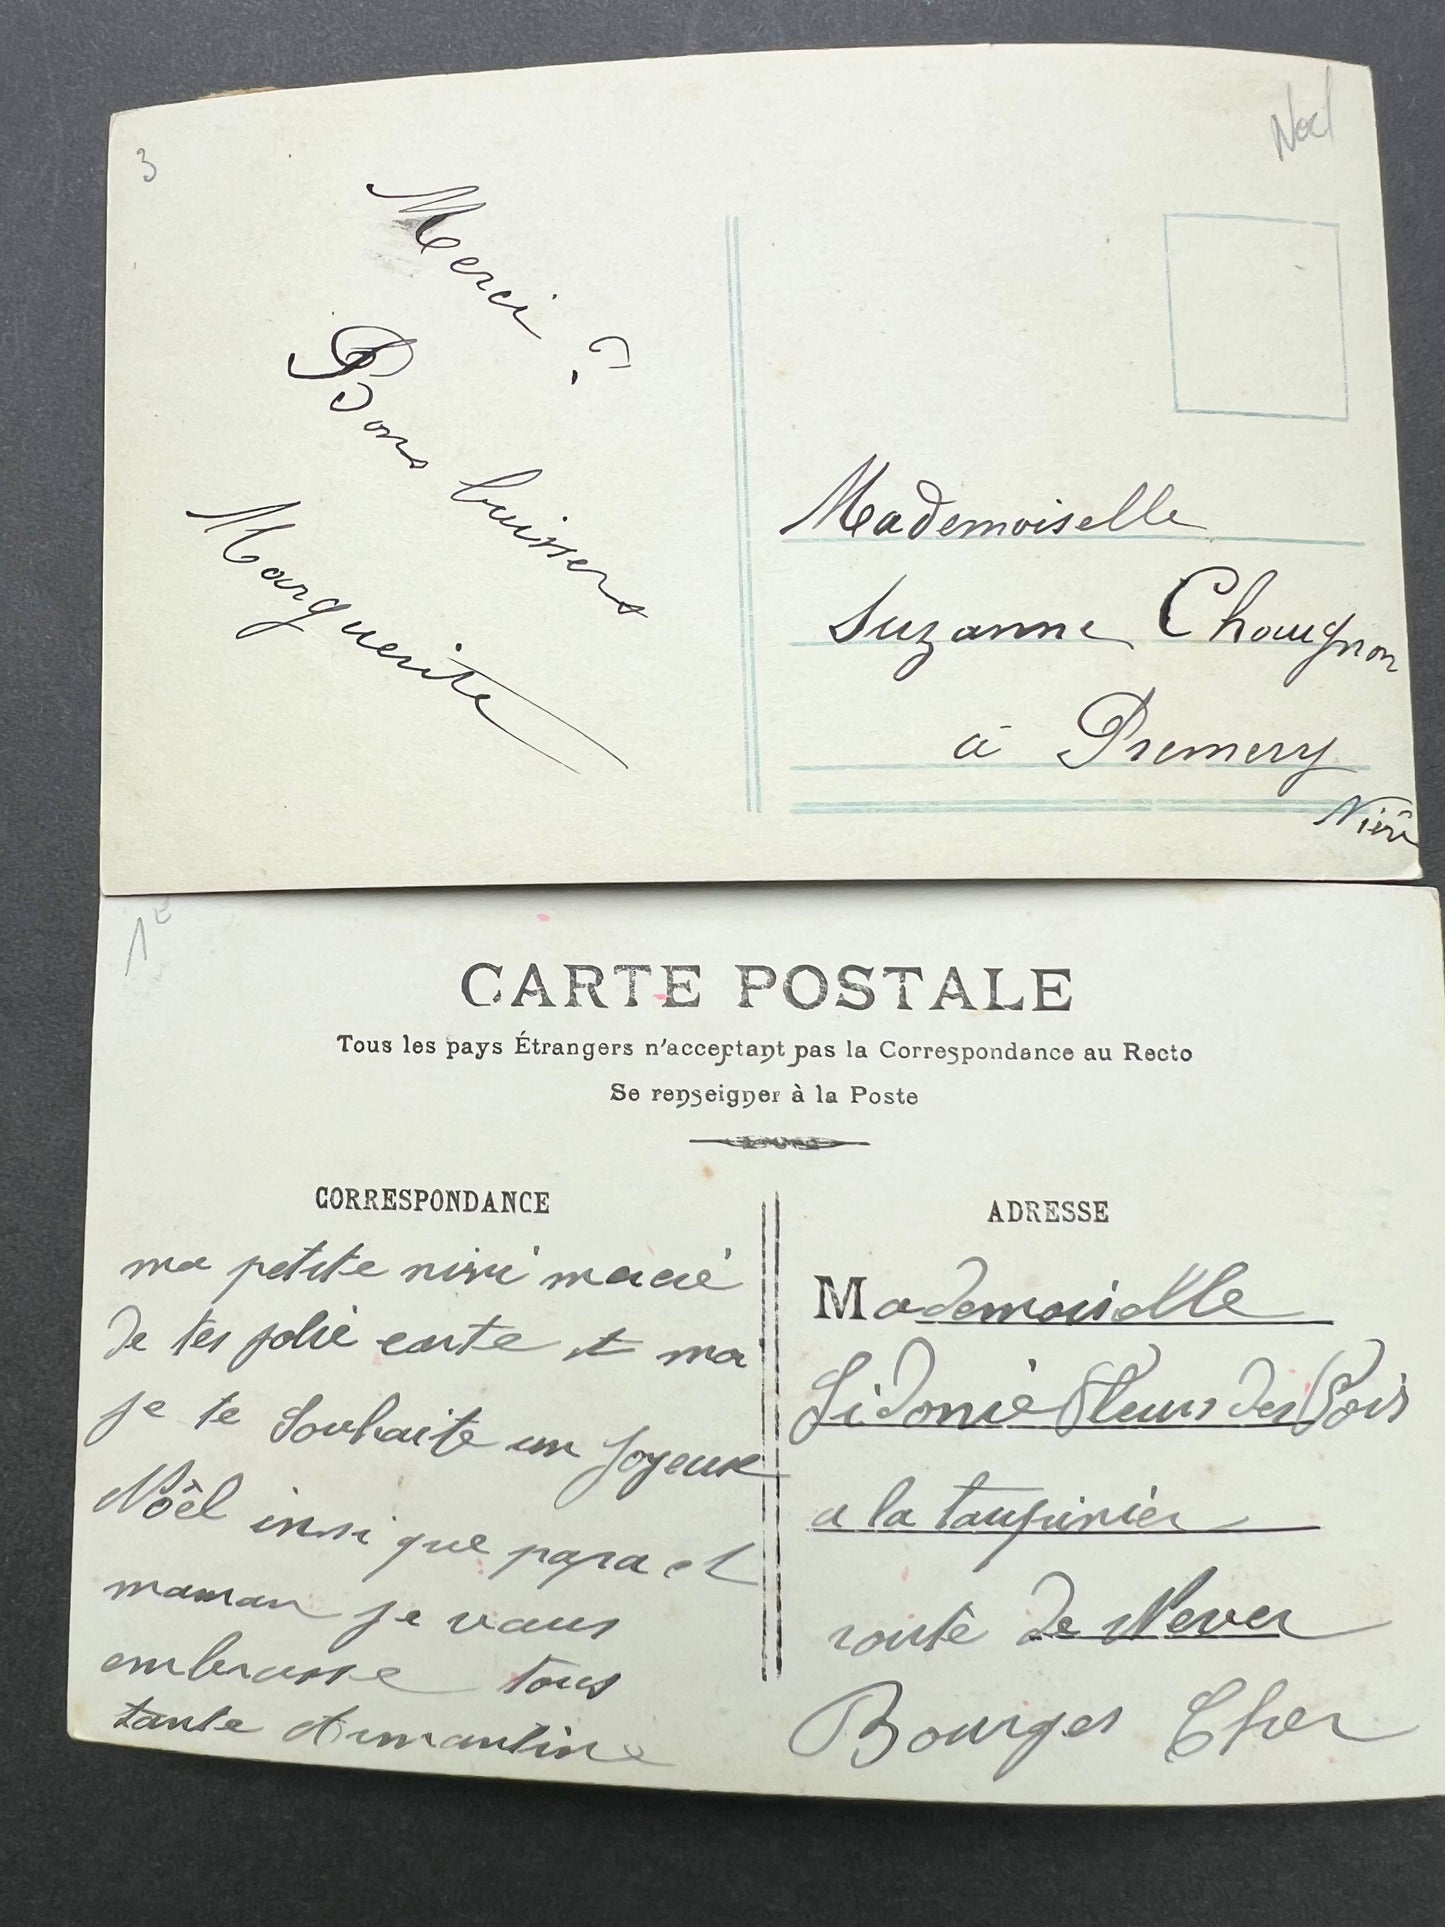 3
Noel
Merci ?
Bons baisers
Marguerite
Mademoiselle
Suzanne Chaugnon
à Premery
Nièv
1E
CARTE POSTALE
Tous les pays Étrangers n'acceptant pas la Correspondance au Recto
Se renseigner à la Poste
CORRESPONDANCE
ma petite nini
de tes jolie carte et moi
je te souhaite un joyeuse
Nöel insi que papa et
maman je vous
embrasse tous
tante Amantine
ADRESSE
Mademoiselle
Sidonie Fleurs des Bois
a la taupinier
route de Never
Bourges Cher